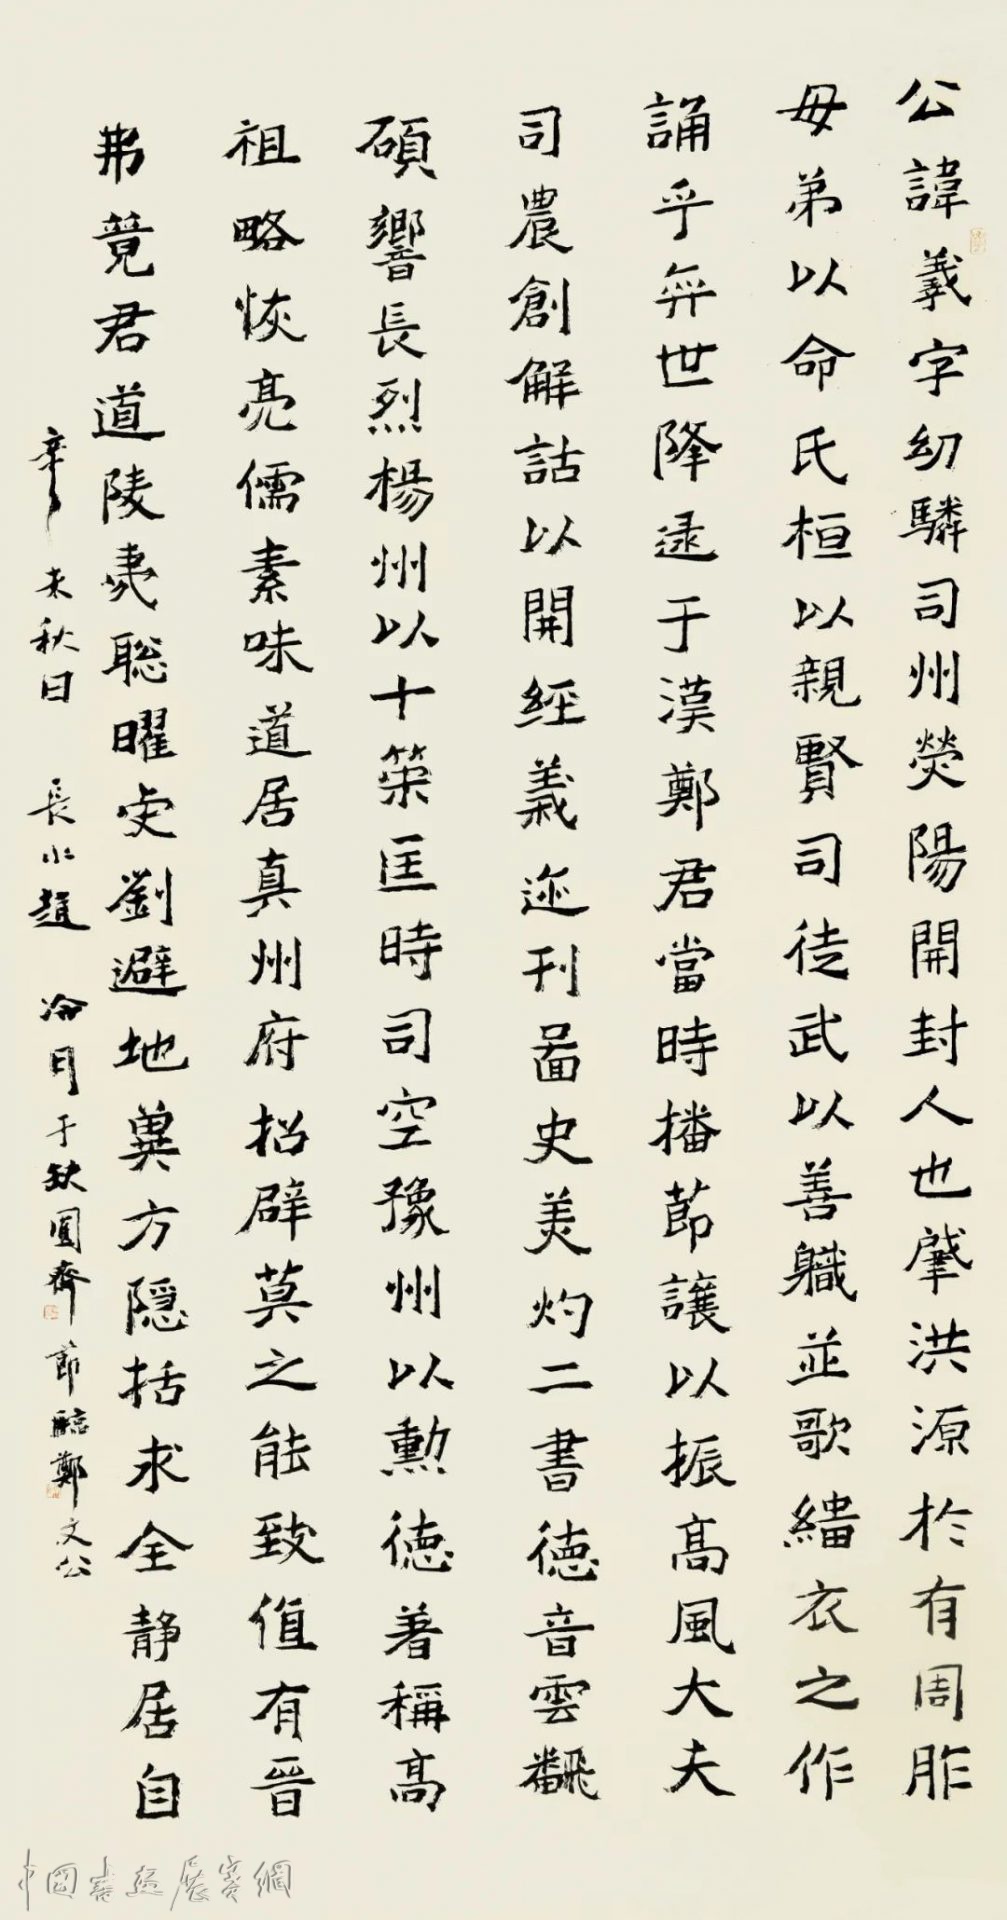 公諱羲字幼驎司州熒陽開封人也肇洪源於有周胙
母弟以命氏桓以親賢司徒武以善軄並歌緇衣之作
誦乎弈世降逮于漢鄭君當時播節讓以振高風大夫
司農創解詁以開經義迹刊啚史美灼二書徳音雲飜
碩響長烈楊州以十策匡時司空豫州以勳徳著稱高
祖略恢亮儒素味道居真州府招辟莫之能致值有晉
弗竟君道陵夷聡曜虔劉避地冀方隱括求全静居自
辛未秋日 長水趙冷月于缺圓齋節臨鄭文公
中國書画展賽網